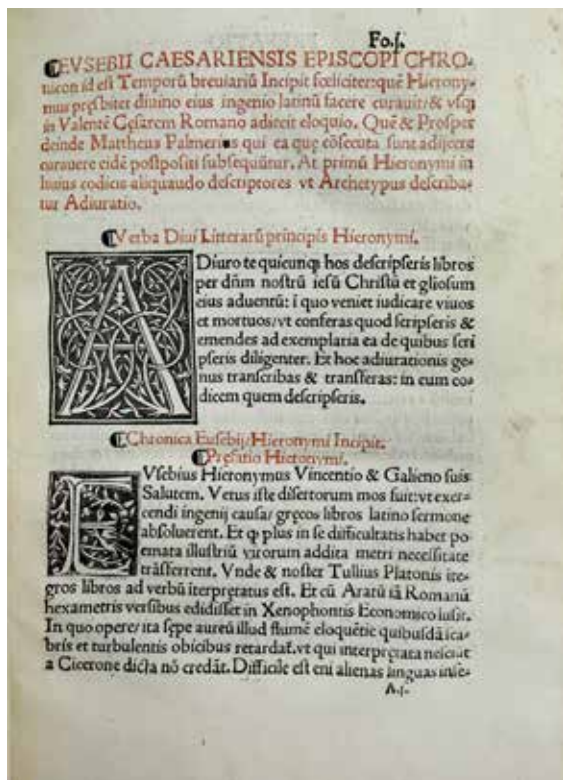 Fo.j.
EVSEBII CAESARIENSIS EPISCOPI CHRO-
nicon id est Temporū breuiariū Incipit fœliciter: quē Hierony-
mus pręsbiter diuino eius ingenio latinū facere curauit/& vsq;
in Valentē Cęsarem Romano adiecit eloquio. Quē & Prosper
deinde Mattheus Palmerius qui ea quę cōsecuta sunt adijcere
curauere eidē postpositi subsequūtur. At primū Hieronymi in
huius codicis aliquando descriptores vt Archetypus describa-
tur Adiuratio.
Verba Diui Litterarū principis Hieronymi.
ADiuro te quicunq; hos descripseris libros
per dn̄m nostrū iesū Christū et gliosum
eius aduentū: i quo veniet iudicare viuos
et mortuos/vt conferas quod scripseris &
emendes ad exemplaria ea de quibus scri
pseris diligenter. Et hoc adiurationis ge-
nus transcribas & transferas: in eum co-
dicem quem descripseris.
Chronica Eusebij/Hieronymi Incipit.
Pręfatio Hieronymi.
EVsebius Hieronymus Vincentio & Galieno suis
Salutem. Vetus iste disertorum mos fuit: vt exer-
cendi ingenij causa/ gręcos libros latino sermone
absoluerent. Et qp plus in se difficultatis habet po
emata illustriū virorum addita metri necessitate
trāsferrent. Vnde & noster Tullius Platonis ite-
gros libros ad verbū iterpretatus est. Et cū Aratū iā Romanū
hexametris versibus edidisset in Xenophontis Economico lusit.
In quo opere/ita sępe aureū illud flumē eloquētie quibusdā sca-
bris et turbulentis obicibus retardat̄. vt qui interpretata nesciūt
a Cicerone dicta nō credāt. Difficile est eni alienas linguas inse-
A.j.